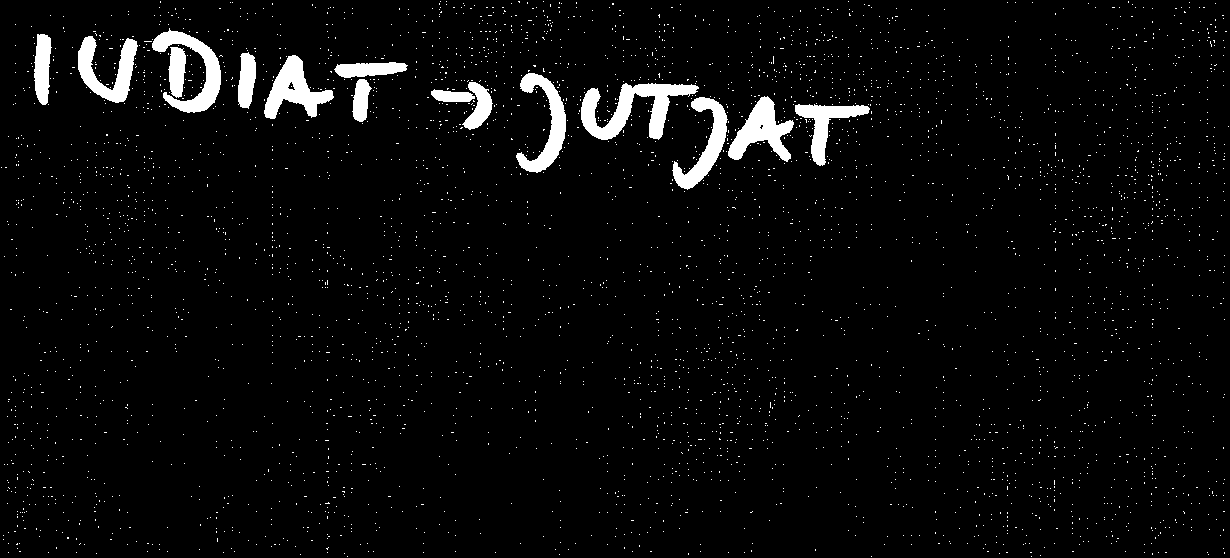 IUDIAT → JUTJAT